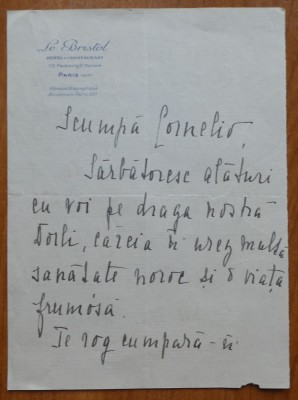 Le Bristol
PARIS
Scumpă Cornelio,
Sărbătoresc alături
cu voi pe draga nostră
Dorli, căreia îi urez multă
sanătate noroc și o viață
frumósă.
Te rog cumpară-ii